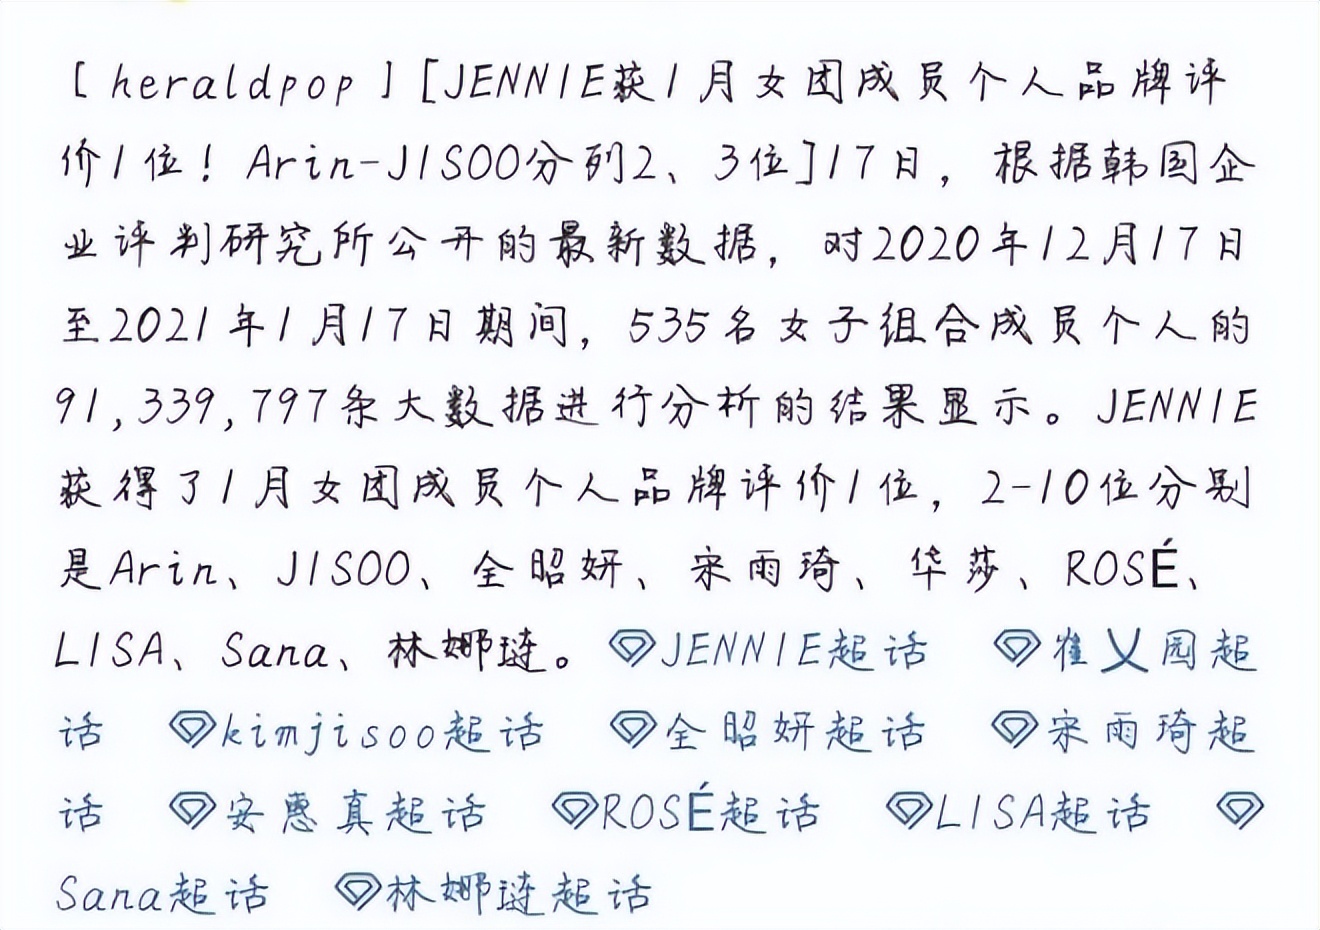 [heraldpop][JENNIE获1月女团成员个人品牌评
价1位！Arin-JISOO分列2、3位]17日，根据韩国企
业评判研究所公开的最新数据，对2020年12月17日
至2021年1月17日期间，535名女子组合成员个人的
91,339,797条大数据进行分析的结果显示。JENNIE
获得了1月女团成员个人品牌评价1位，2-10位分别
是Arin、JISOO、全昭妍、宋雨琦、华莎、ROSÉ、
LISA、Sana、林娜琏。JENNIE超话 崔乂园超
话 kimjisoo超话 全昭妍超话 宋雨琦超
话 安惠真超话 ROSÉ超话 LISA超话
Sana超话 林娜琏超话